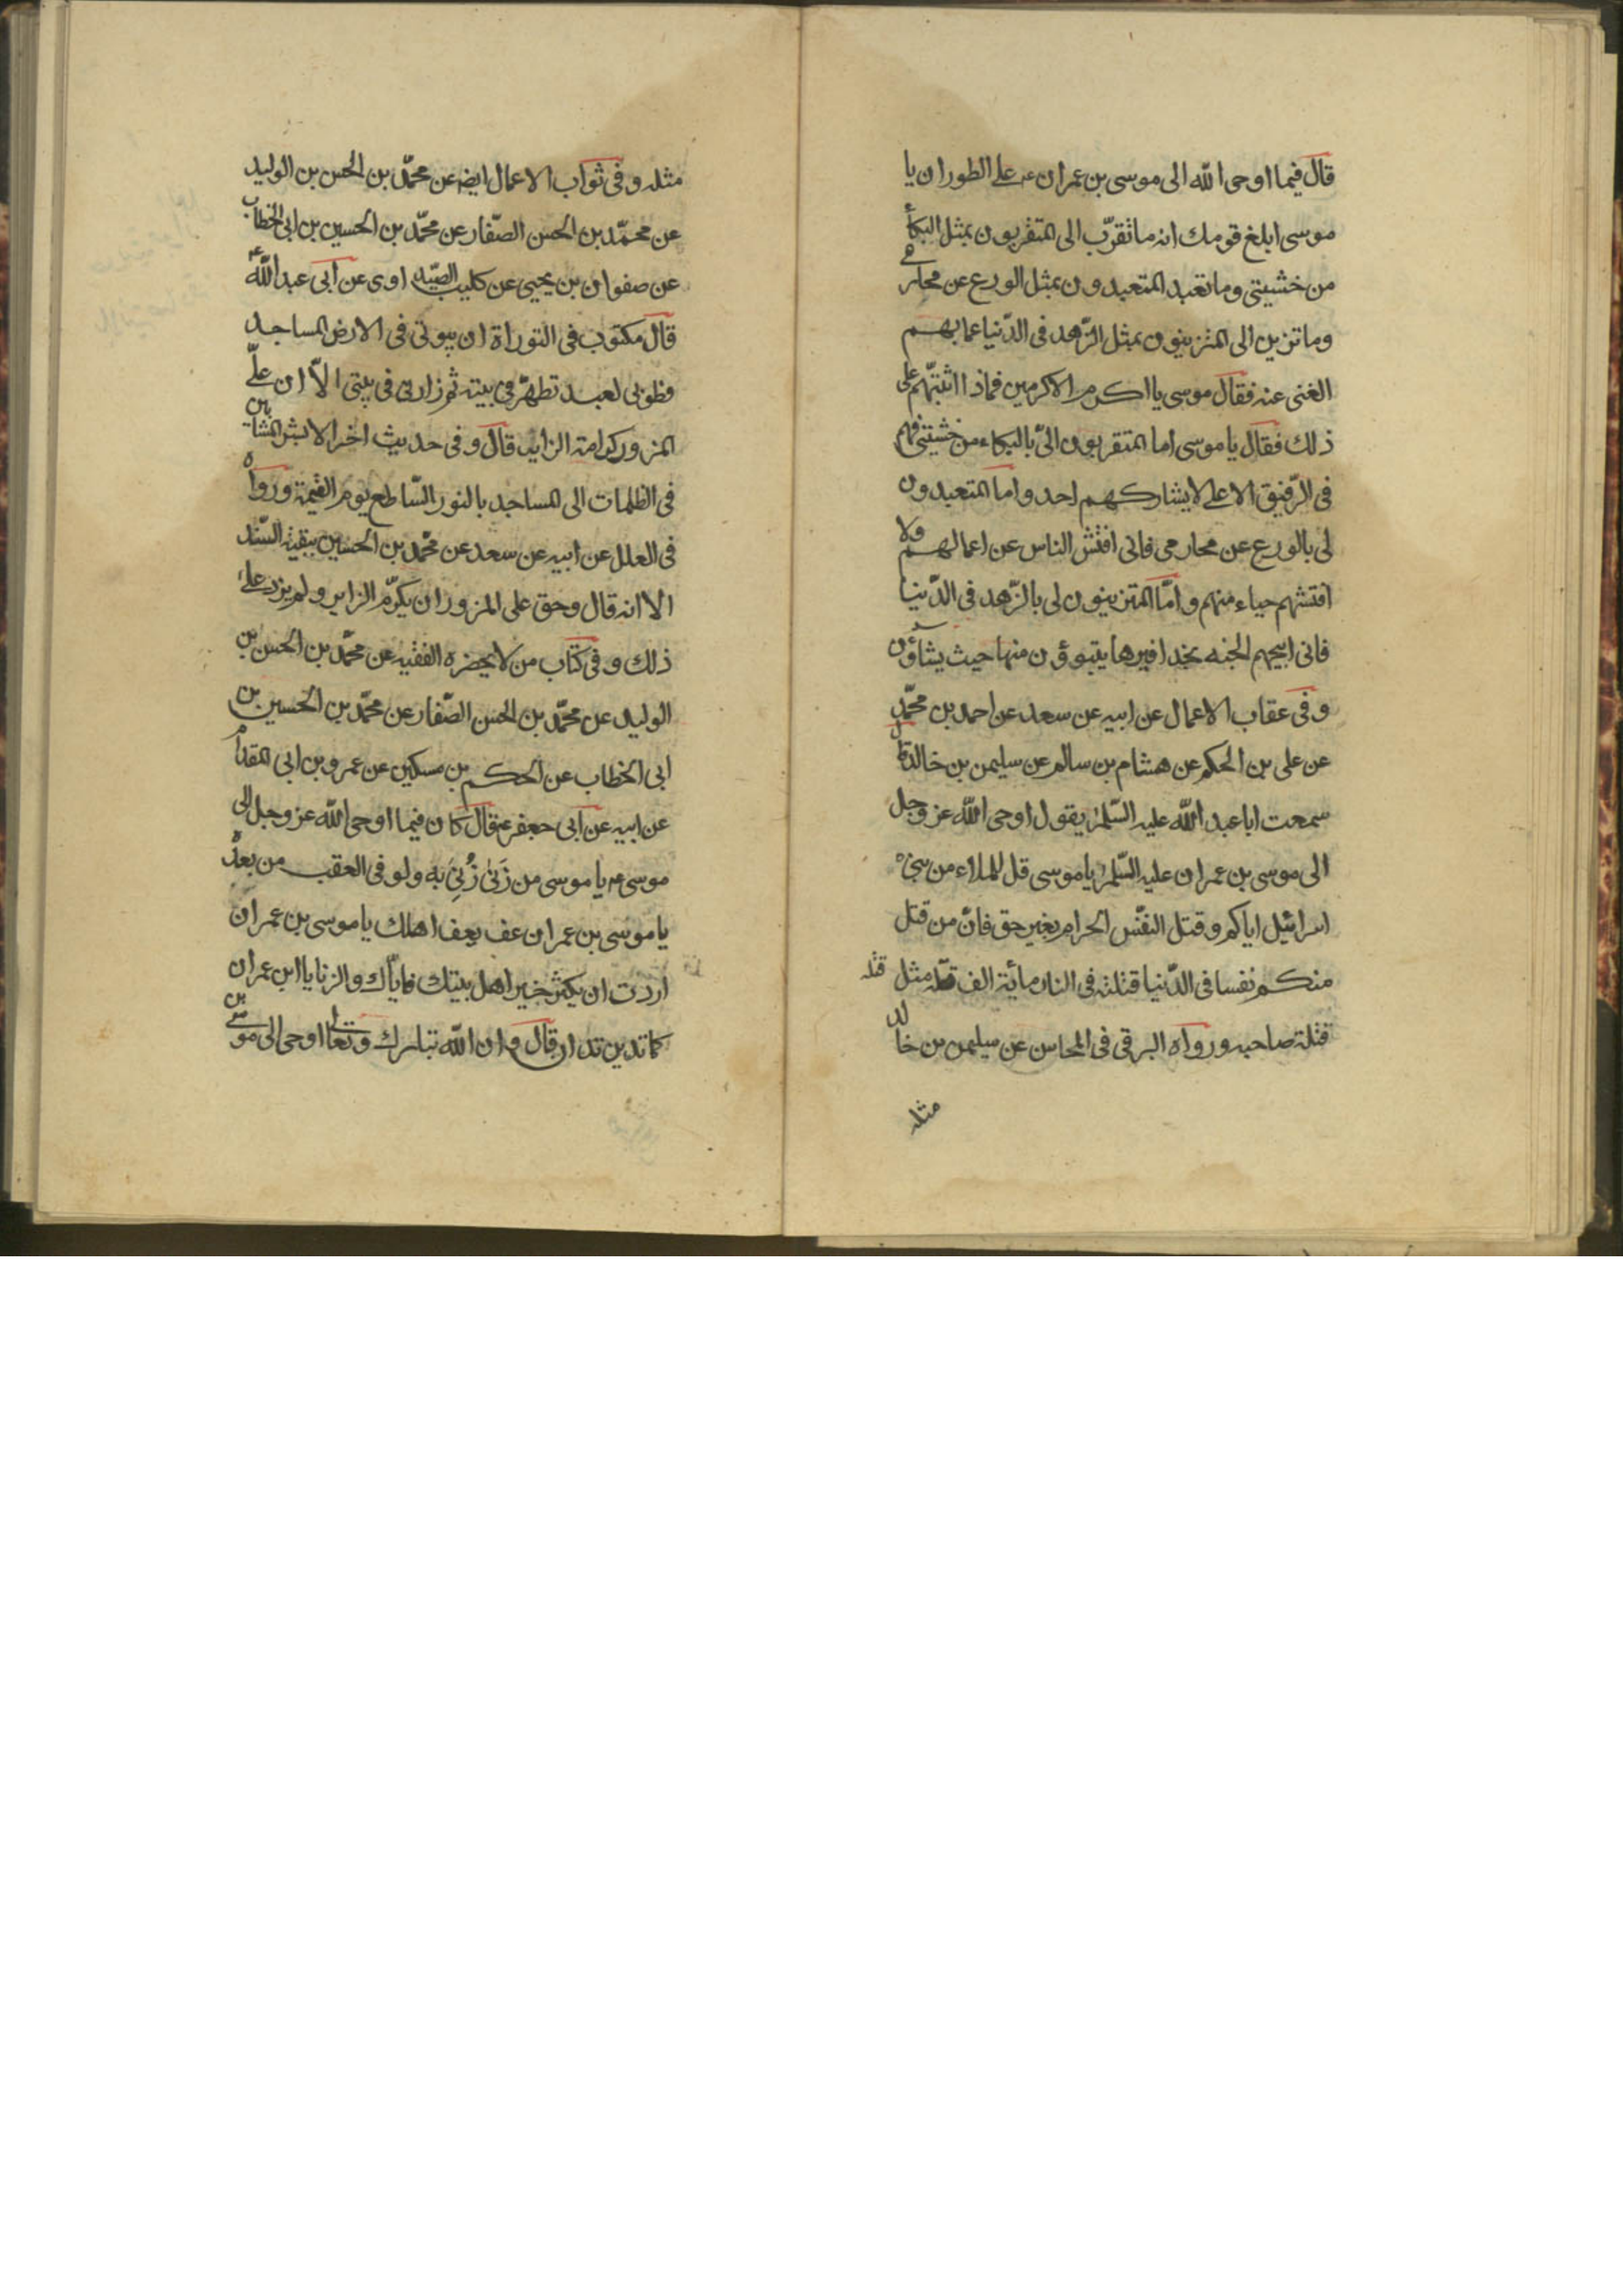 قال فيما اوحى الله الى موسى بن عمران عه على الطور ان يا
موسى ابلغ قومك انه ما تقرّب الى المتقربون بمثل البكاء
من خشيتى وما تعبد المتعبدون بمثل الورع عن محارمى
وما تزين الى المتزينون بمثل الزّهد فى الدّنيا عما بهم
الغنى عنه فقال موسى يا اكرم الاكرمين فماذا اثبتهم على
ذلك فقال يا موسى اما المتقربون الىّ بالبكاء من خشيتى فهم
فى الرّفيق الاعلى لا يشاركهم احد واما المتعبدون
لى بالورع عن محارمى فانى افتش الناس عن اعمالهم ولا
افتشهم حياء منهم وامّا المتزينون لى بالزّهد فى الدّنيا
فانى ابيحهم الجنه بحدافيرها يتبوؤن منها حيث يشاؤن
وفى عقاب الاعمال عن ابيه عن سعد عن احمد بن محمّد
عن على بن الحكم عن هشام بن سالم عن سليمن بن خالد قال
سمعت ابا عبد الله عليه السّلم يقول اوحى الله عز وجل
الى موسى بن عمران عليه السّلم يا موسى قل للملاء من بنى
اسرائيل اياكم وقتل النفس الحرام بغير حق فانّ من قتل
منكم نفسا فى الدّنيا قتلته فى النار مأية الف قتله مثل
قتله
قتلة صاحبه ورواه البرقى فى المحاسن عن سليمن بن خالد
مثله
مثله وفى ثواب الاعمال ايضه عن محمّد بن الحسن بن الوليد
عن محمّد بن الحسن الصّفار عن محمّد بن الحسين بن ابى الخطاب
عن صفوان بن يحيى عن كليب الصّيداوى عن ابى عبد الله عه
قال مكتوب فى التوراة ان بيوتى فى الارض المساجد
فطوبى لعبد تطهّر فى بيته ثم زارنى فى بيتى الاّ ان علىّ
المزور كرامة الزاير قال وفى حديث اخر الا بشر المشائين
فى الظلمات الى المساجد بالنور السّاطع يوم القيمة ورواه
فى العلل عن ابيه عن سعد عن محمّد بن الحسين ببقية السّند
الا انه قال وحق على المزور ان يكرّم الزاير ولم يزد على
ذلك وفى كتاب من لا يحضره الفقيه عن محمّد بن الحسن بن
الوليد عن محمّد بن الحسن الصّفار عن محمّد بن الحسين بن
ابى الخطاب عن الحكم بن مسكين عن عمرو بن ابى المقدام
عن ابيه عن ابى جعفر عه قال كان فيما اوحى الله عز وجل الى
موسى ع يا موسى من زَنىٰ زُنِىَ به ولو فى العقب من بعده
يا موسى بن عمران عف يعف اهلك يا موسى بن عمران
اردت ان يكثر خير اهل بيتك فايّاك والزنا يا ابن عمران
كما تدين تدان قال وان الله تبارك وتعالى اوحى الى موسى بن